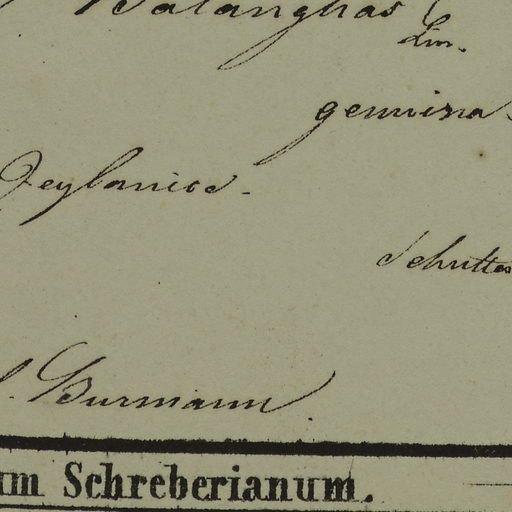 Balanghas (
Lin.
genuina
Zeylanica.
Schultes
Burmann.
um Schreberianum.